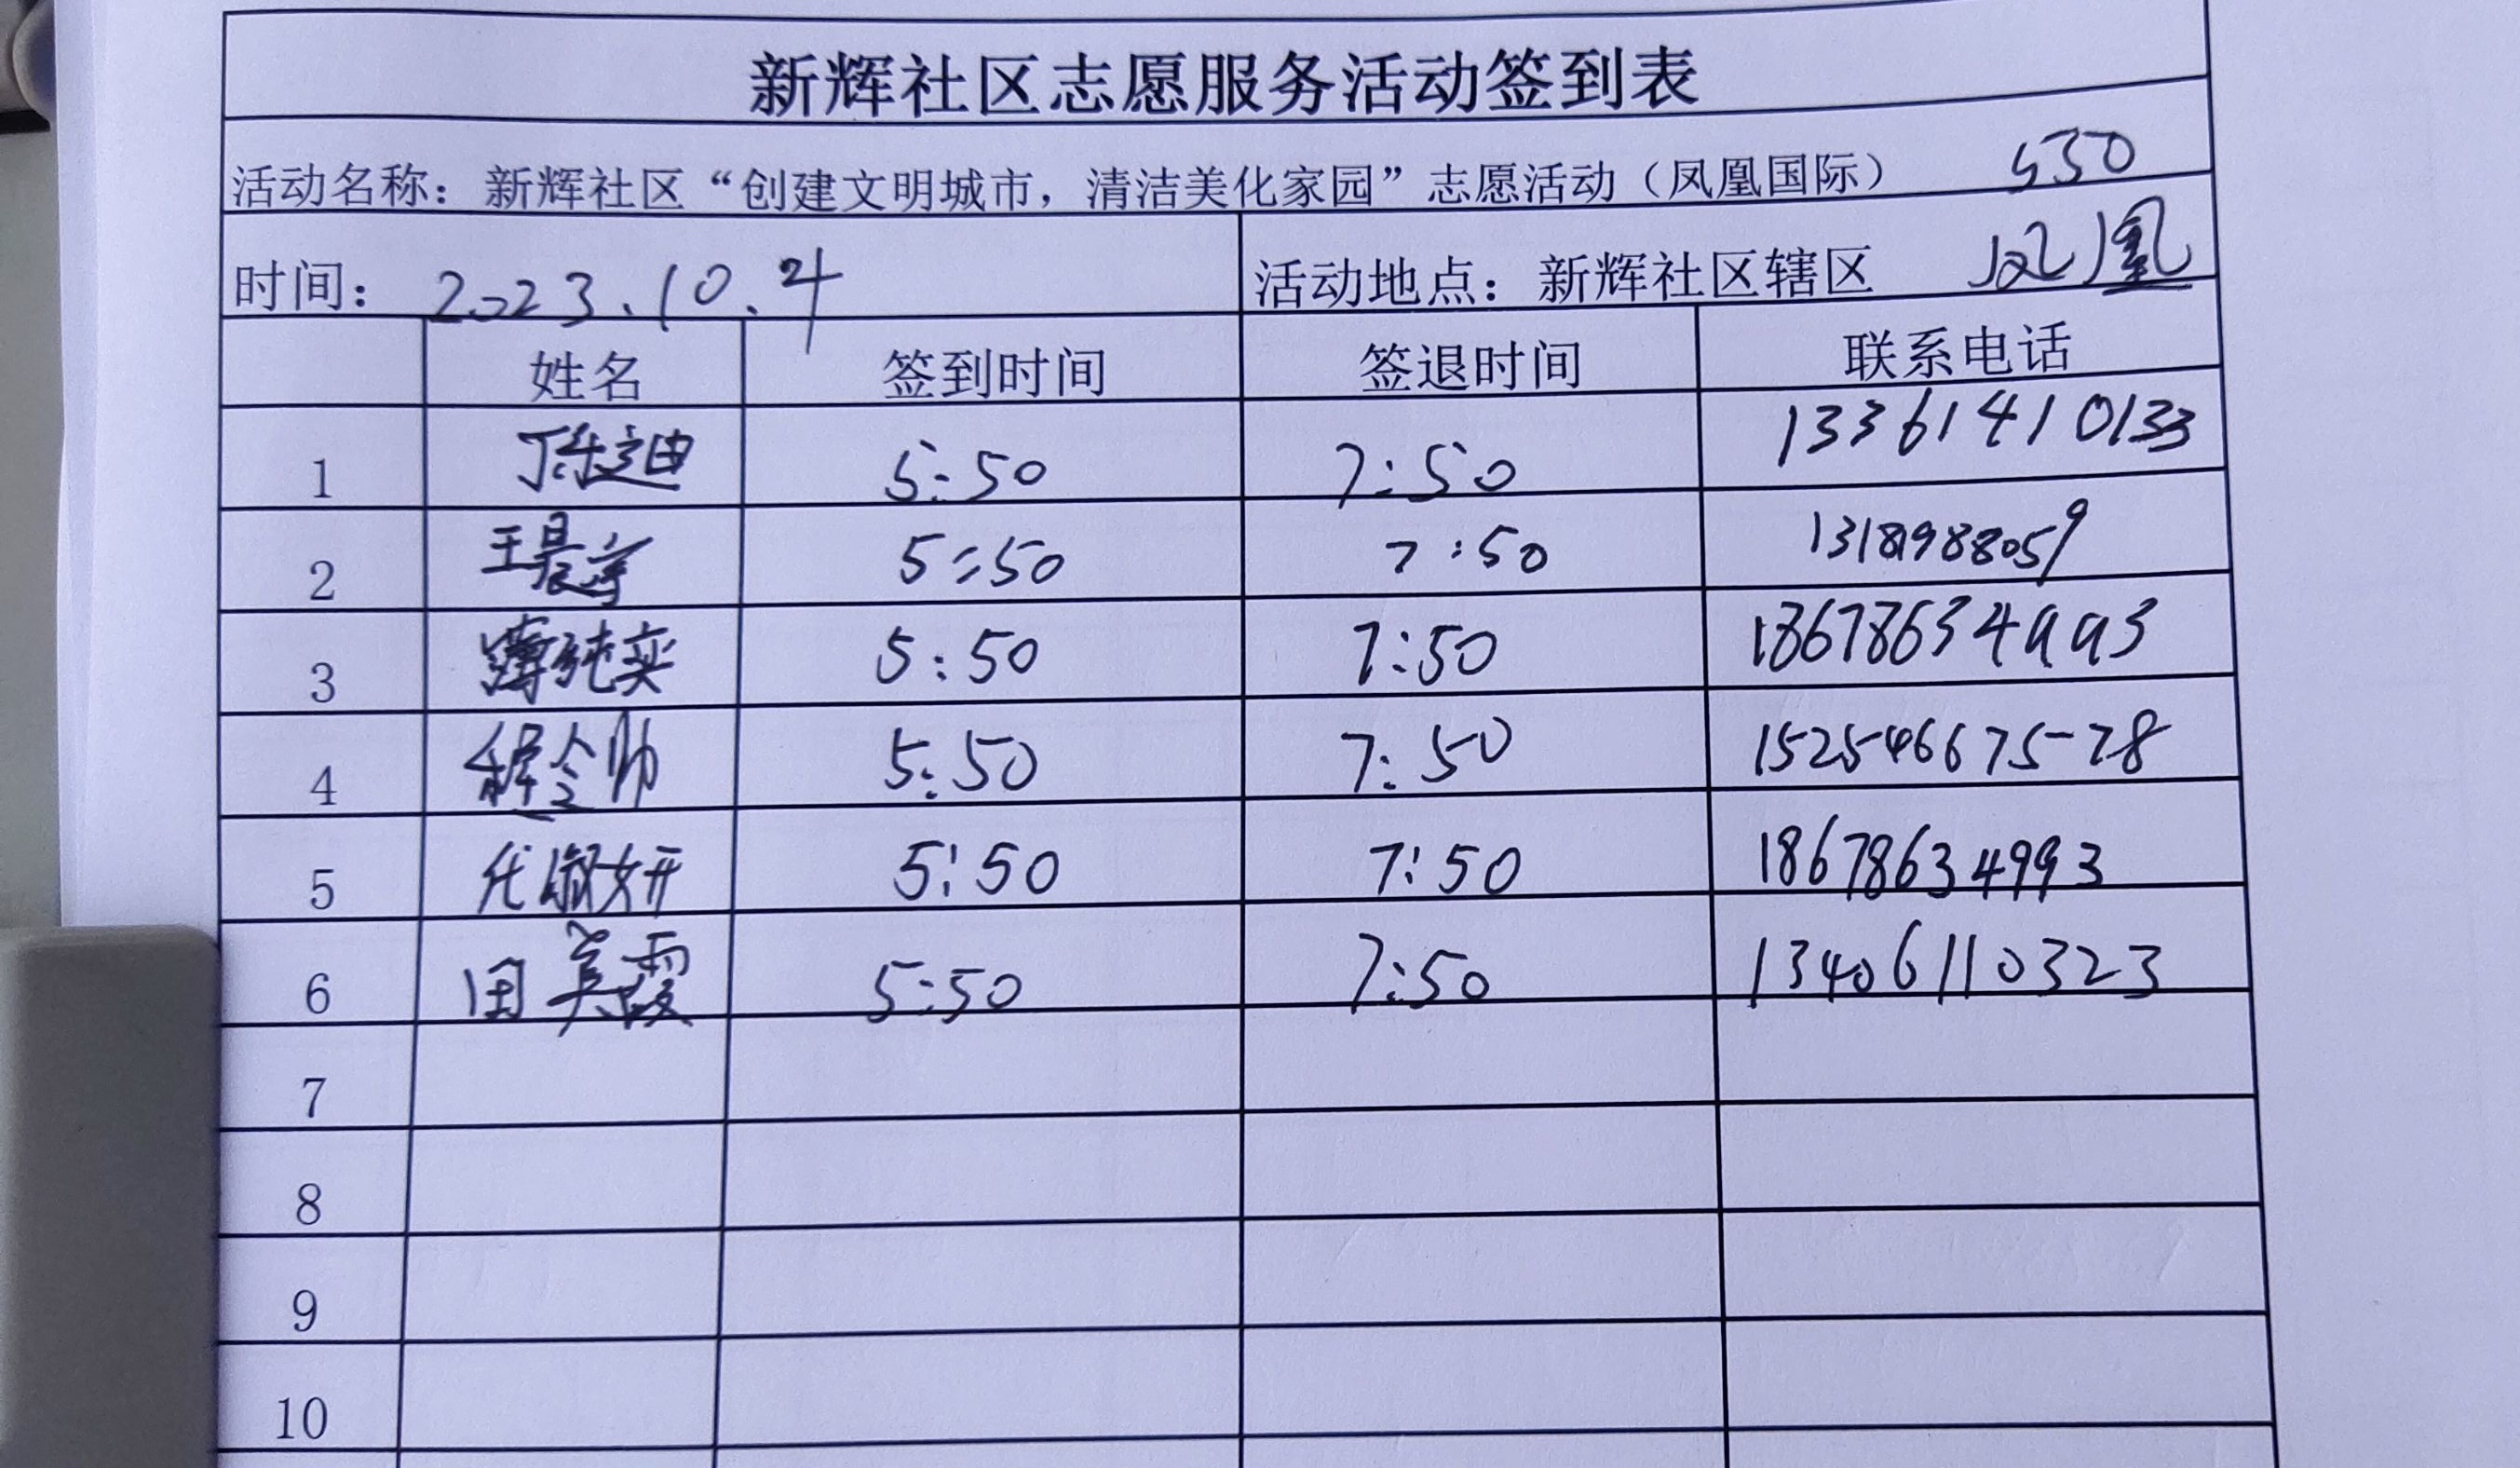 新辉社区志愿服务活动签到表
活动名称：新辉社区“创建文明城市，清洁美化家园”志愿活动（凤凰国际） 530
时间： 2023.10.4 活动地点：新辉社区辖区 凤凰
姓名 签到时间 签退时间 联系电话
1 5:50 7:50 13361410133
2 王晨宇 5:50 7:50 13181988059
3 薄纯奕 5:50 7:50 18678634993
4 程令帅 5:50 7:50 15254667578
5 代淑妍 5:50 7:50 18678634993
6 田英霞 5:50 7:50 13406110323
7
8
9
10